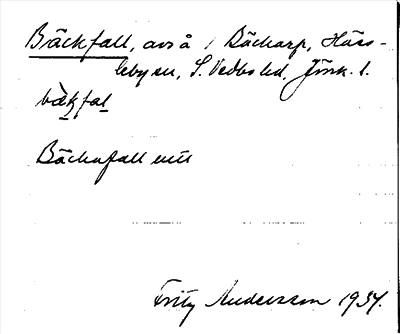 Bäckfall, avs å i Bäckarp, Häss-
leby sn, S. Vedbo hd. Jönk. l.
bäkfal
Bäckafall
Fritz Andersson 1934.